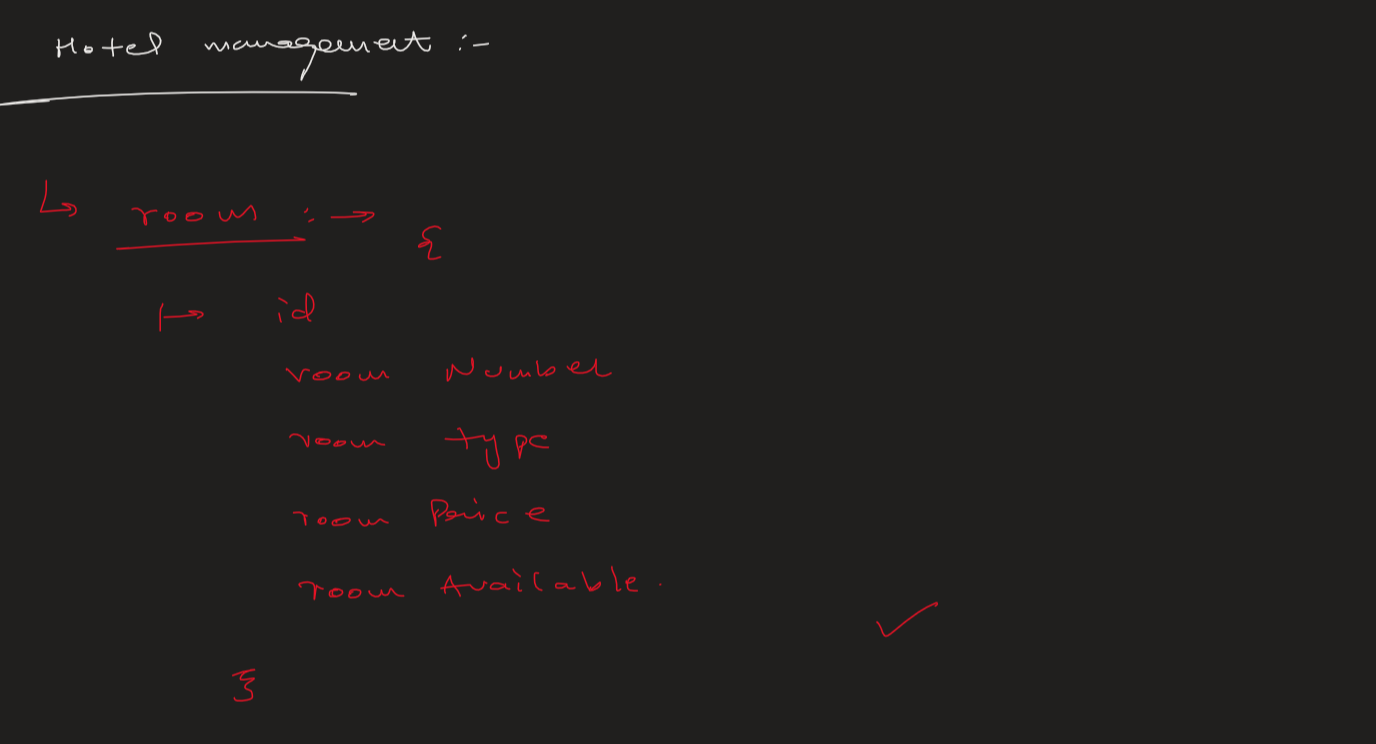 Hotel management :-
↳ room :→ {
↦ id
room Number
room type
room Price
room Available.
}